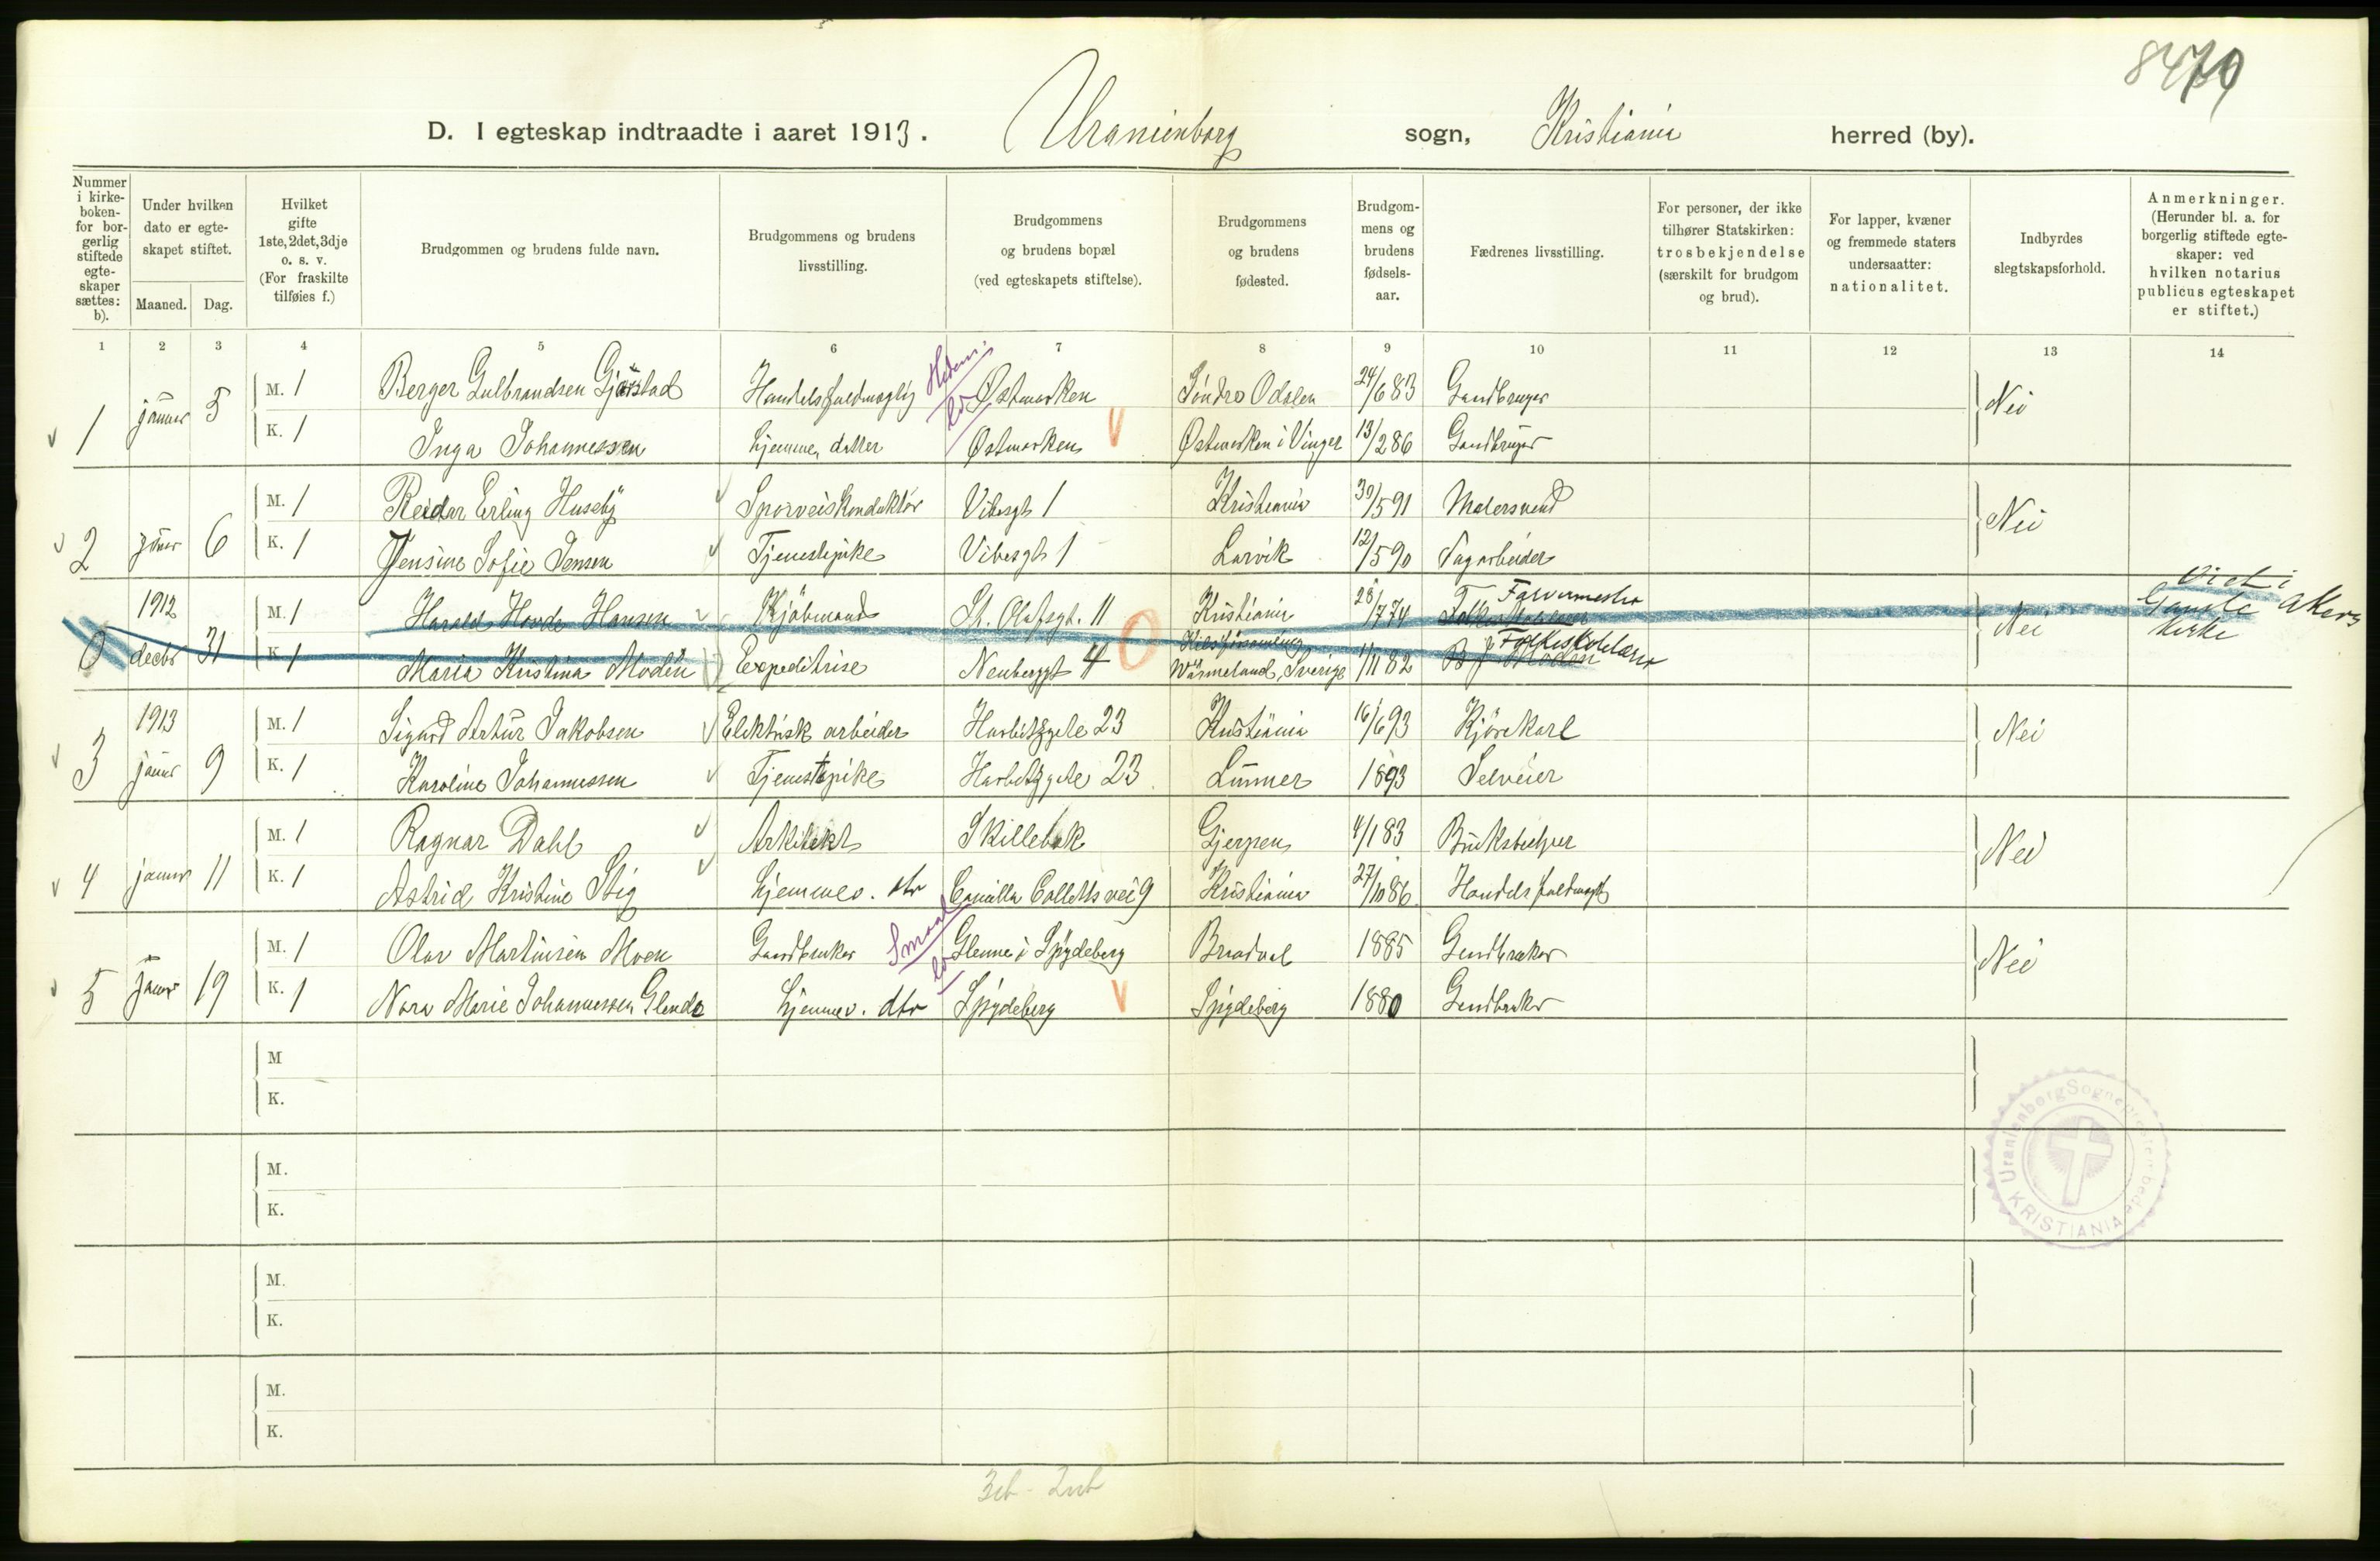 D. I egteskap indtraadte i aaret 1913. Uranienborg sogn, Kristiania herred (by).
Nummer i kirke-boken for bor-gerlig stiftede egte-skaper sættes: b).
Under hvilken dato er egte-skapet stiftet.
Maaned. Dag.
Hvilket gifte 1ste, 2det, 3dje o. s. v. (For fraskilte tilføies f.)
Brudgommen og brudens fulde navn.
Brudgommens og brudens livsstilling.
Brudgommens og brudens bopæl (ved egteskapets stiftelse).
Brudgommens og brudens fødested.
Brudgom-mens og brudens fødsels-aar.
Fædrenes livsstilling.
For personer, der ikke tilhører Statskirken: trosbekjendelse (særskilt for brudgom og brud).
For lapper, kvæner og fremmede staters undersaatter: nationalitet.
Indbyrdes slegtskapsforhold.
Anmerkninger. (Herunder bl. a. for borgerlig stiftede egte-skaper: ved hvilken notarius publicus egteskapet er stiftet.)
1 2 3 4 5 6 7 8 9 10 11 12 13 14
1 januar 5 M. 1 Berger Gulbrandsen Handelsfuldmægtig Østmarken Søndre Odalen 24/6 83 Gaardbruger Nei
K. 1 Inga Johannessen hjemmev. datter Østmarken Østmarken i Vinger 13/2 86 Gaardbruger
2 januar 6 M. 1 Reidar Erling Huseby Sporveiskonduktør Vibesgt 1 Kristiania 30/5 91 Malersvend Nei
K. 1 Jensine Sofie Jensen Tjenestepike Vibesgt 1 Larvik 12/5 90 Sagarbeider
0 1912 decbr 31 M. 1 Harald Hansen Kjøbmand St. Olafsgt. 11 Kristiania 28/7 74 Farvermester Nei Viet i Gamle Akers Kirke
K. 1 Maria Kristina Modén Expeditrise Neuberggt 4 Wärmeland, Sverige 1/11 82 Folkeskolelærer
3 1913 januar 9 M. 1 Sigurd Artur Jakobsen Elektrisk arbeider Harbitzgate 23 Kristiania 16/6 93 Kjørekarl Nei
K. 1 Karoline Johannessen Tjenestepike Harbitzgate 23 Lunner 1893 Selveier
4 januar 11 M. 1 Ragnar Dahl Arkitekt Skillebæk Gjerpen 4/1 83 Bruksbestyrer Nei
K. 1 Astrid Kristine Stig hjemmev. dtr Camilla Colletts vei 9 Kristiania 27/10 86 Handelsfuldmægt
5 januar 19 M. 1 Olav Martinsen Moen Gaardbruker Glenne i Spydeberg Braadval 1885 Gaardbruker Nei
K. 1 Nora Marie Johannessen hjemmev. dtr Spydeberg Spydeberg 1880 Gaardbruker
M
K.
M.
K.
M.
K.
M.
K.
Uranienborg Sogneprestembede
KRISTIANIA